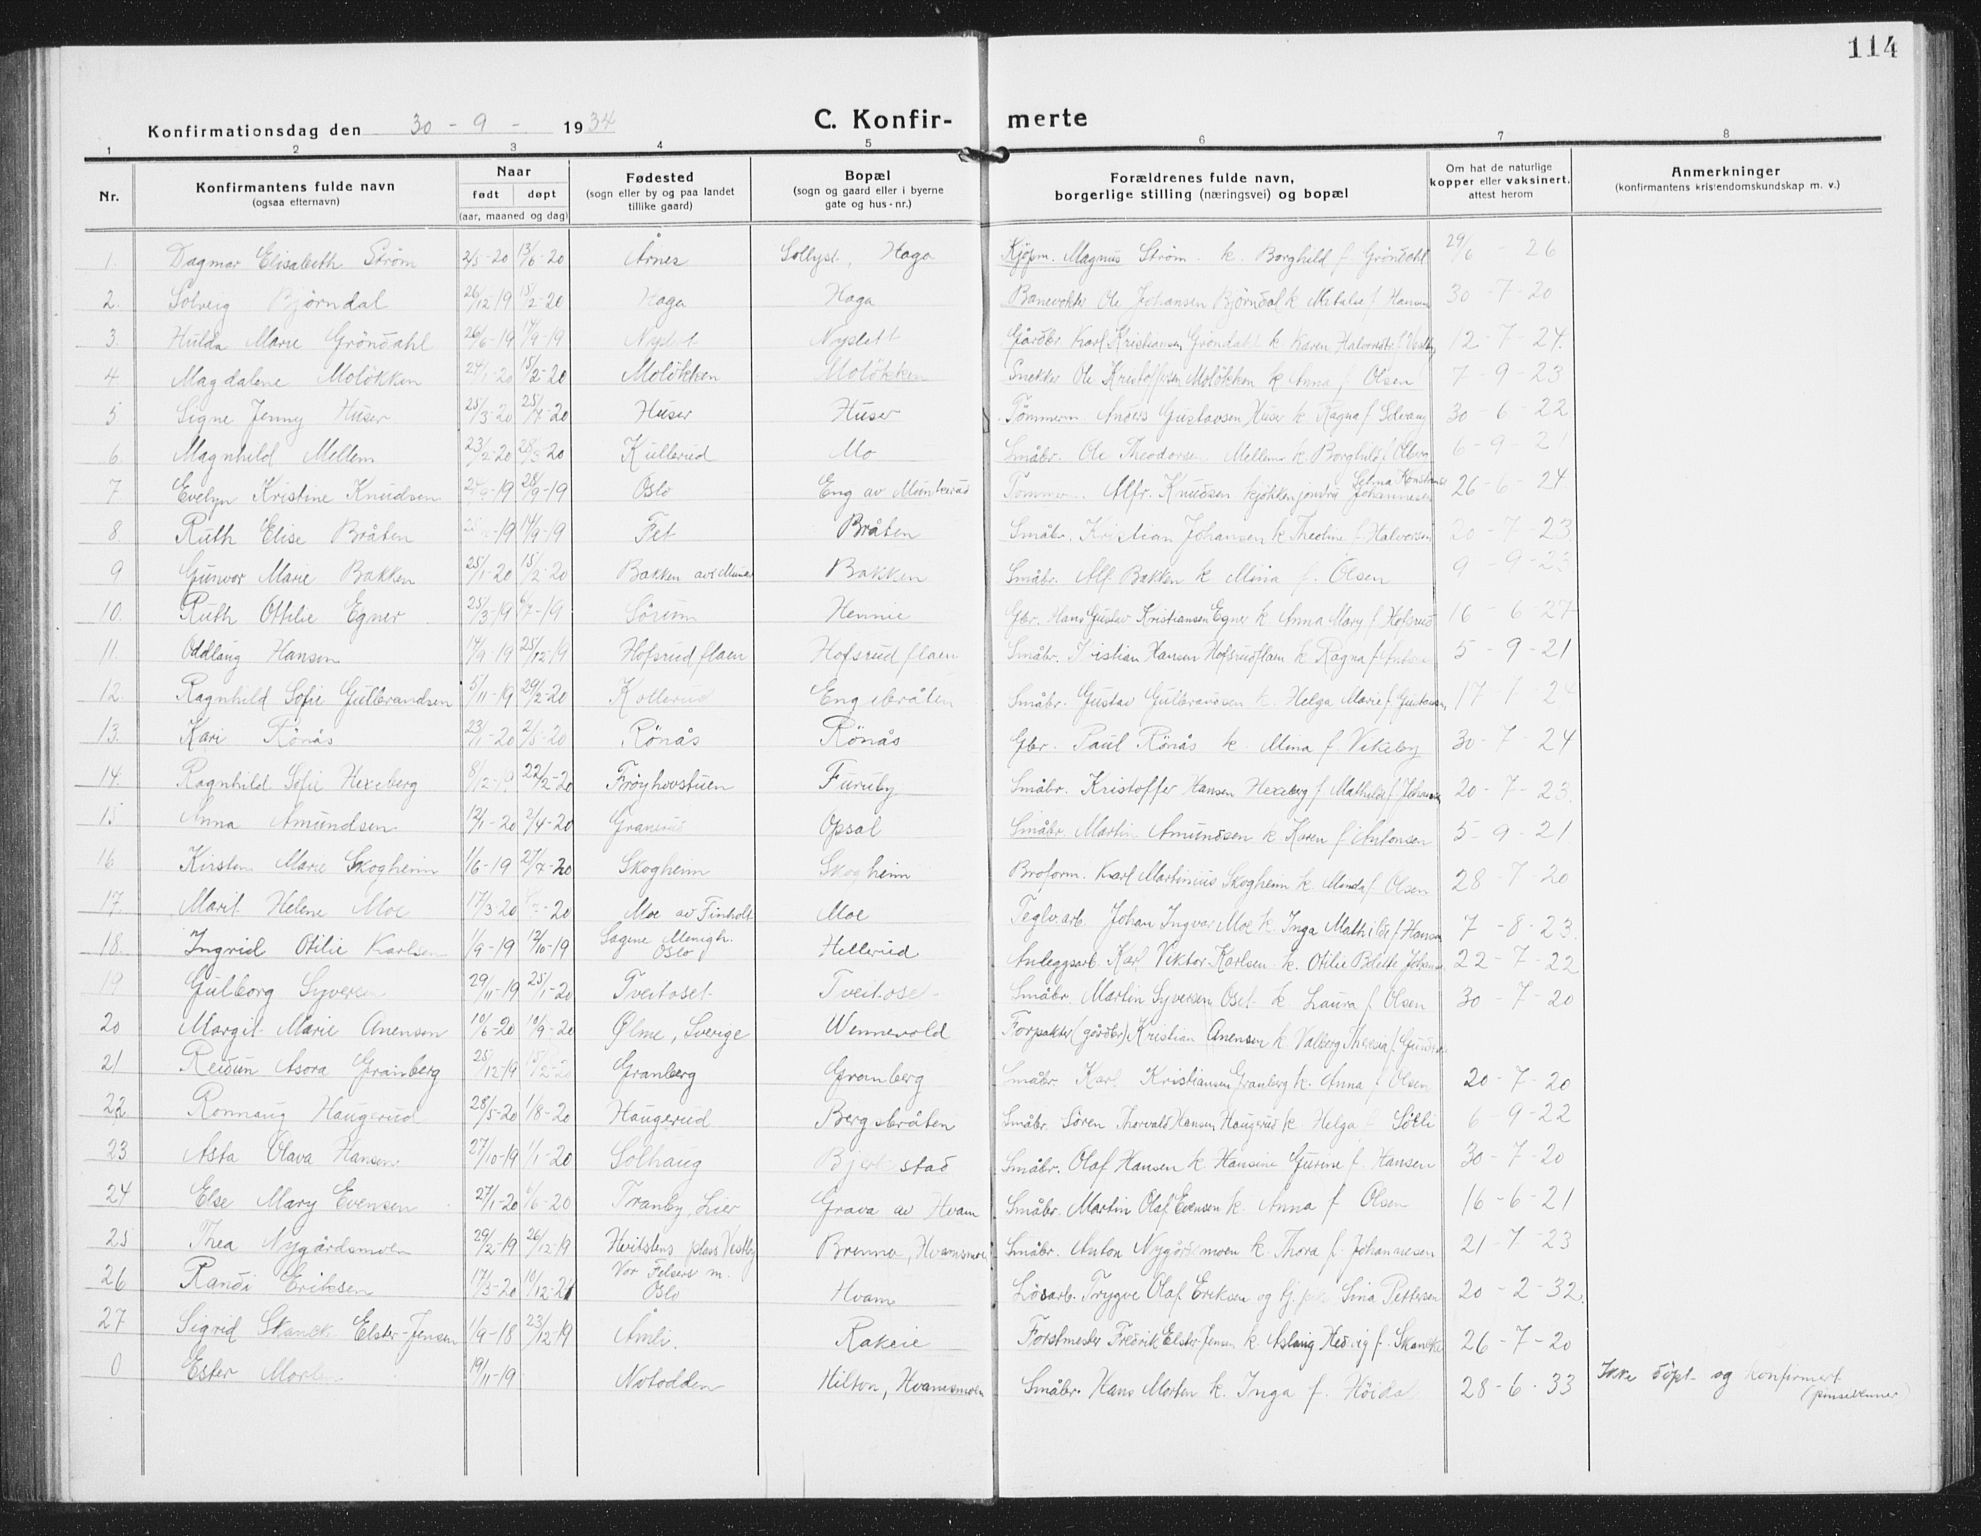 114
Konfirmationsdag den 30 - 9 - 1934 C. Konfir- merte
1 2 3 4 5 6 7 8
Nr. Konfirmantens fulde navn (ogsaa efternavn) Naar født døpt (aar, maaned og dag) Fødested (sogn eller by og paa landet tillike gaard) Bopæl (sogn og gaard eller i byerne gate og hus-nr.) Forældrenes fulde navn, borgerlige stilling (næringsvei) og bopæl Om hat de naturlige kopper eller vaksinert, attest herom Anmerkninger (konfirmantens kristendomskundskap m. v.)
1. Dagmar Elisabeth Ström 2/5-20 13/6-20 Årnes Sollyst, Haga Kjöpm. Magnus Ström. k. Borghild f. Gröndahl 29/6 - 26
2. Solveig Björndal 26/12-19 15/2-20 Haga Haga Banevokter Ole Johansen Björndal k. f. Hansen 30-7-20
3. Hulda Marie Gröndahl 26/6-19 14/9-19 Nyslett Gårdbr Karl Kristiansen Gröndahl k Karen 12-7-24.
4 Magdalene Molökken 24/1-20 15/2-20 Molökken Molökken Snekker Ole Kristoffersen Molökken k Anna f Olsen 7-9-23
5 Signe Jenny Huser 25/3-20 25/7-20 Huser Huser Tömmerm. Anders Gustavsen Huser k. Ragna f. 30-6-22
6 Magnhild Mellem 23/2-20 28/3-20 Kullerud Mo Småbr. Ole Theodorsen Mellem k. Borghild f. Olberg 6-9-21
7 Evelyn Kristine Knudsen 28/9-19 Oslo Eng av Munkerud Alfr. Knudsen kjökkenjomfru Selma Johannesen 26-6-24
8 Ruth Elise Bråten 14/9-19 Fet Bråten Småbr. Kristian Johansen k. Theoline f. Halvorsen 20-7-23
9 Gunvor Marie Bakken 25/1-20 15/2-20 Bakken Bakken Småbr. Alf Bakken k Mina f. Olsen 9-9-23
10. Ruth Ottilie Egner 25/3-19 6/7-19 Sörum Hennie Gbr. Hans Gustav Kristiansen Egner k Anna Mary f Hofsrud 16-6-27
11. Oddlaug Hansen 14/9-19 25/12-19 Hofsrudflaen Hofsrudflaen Småbr. Kristian Hansen Hofsrudflaen k. Ragna f. 5-9-21
12. Ragnhild Sofie Gulbrandsen 5/11-19 29/2-20 Kollerud Engebråten Småbr. Gustav Gulbrandsen k. Helga Marie f. Gustavsen 17-1-24
13. Kari Rönås 23/1-20 2/5-20 Rönås Rönås Gbr. Paul Rönås k. Mina f. Vikeby 30-7-24
14. Ragnhild Sofie Hexeberg 8/12-19 22/2-20 Fröyhovstuen Furuby Småbr. Kristoffer Hansen Hexeberg f Mathilde f. Johansen 20-7-23.
15 Anna Amundsen 12/1-20 2/4-20 Granerud Opsal Småbr. Martin Amundsen k Karen f. Antonsen 5-9-21
16 Kirsten Marie Skogheim 1/6-19 Skogheim Skogheim Broform. Karl Martinius Skogheim k. Minda f. Olsen 28-7-20
17. Marit Helene Moe 17/3-20 Moe av Finholt Moe Teglv.arb. Johan Ingvar Moe k. Inga Mathilde f. Hansen 7-8-23.
18. Ingrid Otilie Karlsen 1/9-19 12/10-19 Sagene Menigh. Oslo Hellerud Anleggsarb. Karl Viktor Karlsen k. Otilie f. Johansen 22-7-22
19 Gulborg Syversen 29/11-19 25/1-20 Tveitoset Tveitoset Småbr. Martin Syversen Oset k. Laura f Olsen 30-7-20
20 Margit Marie Anensen 10/6-20 10/9-20 Ølme, Sverige Wennevold Forpakter (gårdbr) Kristian Anensen k. Valborg Theresia f.
21 Reidun Asora Granberg 25/12-19 15/2-20 Granberg Granberg Småbr. Karl Kristiansen Granberg k. Anna f Olsen 20-7-20
22 Ronnaug Haugerud 28/5-20 1/8-20 Haugerud Bergsbråten Småbr. Sören Thorvald Hansen Haugerud k. Helga f Sötli 6-9-22
23 Asta Olava Hansen 27/10-19 1/1-20 Solhaug Bjerkstad Småbr. Olaf Hansen k. Hansine Gurine f. Hansen 30-7-20
24 Else Mary Evensen 27/1-20 6/6-20 Tranby, Lier Grava av Hvam Småbr. Martin Olaf Evensen k. Anna f Olsen 16-6-21
25 Thea Nygårdsmoen 29/2-19 26/12-19 Hvitstens plass Vestby Brenna, Hvamsmoen Småbr. Anton Nygårdsmoen k. Thora f. Johannesen 21-7-23
26 Randi Eriksen 17/3-20 Vor Frelsers m. Oslo Hvam Lösarb. Trygve Olaf Eriksen og Sina Pettersen 20-2-32.
27 Sigrid Skancke Elster-Jensen 1/9-18 23/12-19 Åmli. Rakeie Forstmester Fredrik Elster-Jensen k. Aslaug Hedvig f. Skancke 26-7-20
0 Ester Morten 19/11-19 Notodden Hilton, Hvamsmoen Småbr. Hans Morten k. Inga f. Höidal 28-6-33 Ikke döpt og konfirmert (pinsevenner)